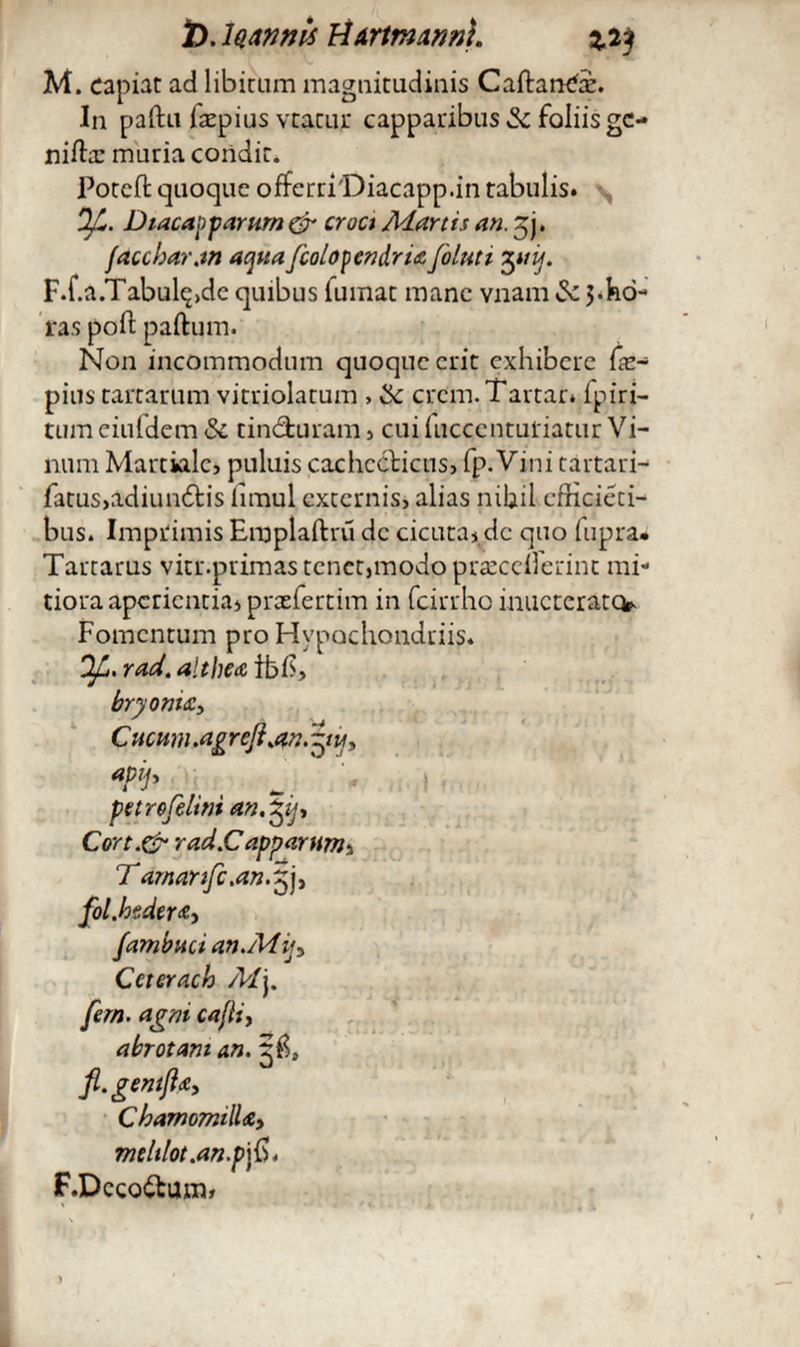 D. Ioannis Hartmanni. 223
M. Capiat ad libitum magnitudinis Caſtaneæ.
In paſtu ſæpius vtatur capparibus & foliis ge-
niſtæ muria condit.
Poteſt quoque offerri Diacapp.in tabulis.
℞. Diacapparum & croci Martis an. ʒj.
ſacchar.in aqua ſcolopendriæ ſoluti ℥iiij.
F.ſ.a.Tabulę,de quibus ſumat mane vnam & 3.ho-
ras poſt paſtum.
Non incommodum quoque erit exhibere ſæ-
pius tartarum vitriolatum, & crem. Tartar. ſpiri-
tum eiuſdem & tincturam, cui ſuccenturiatur Vi-
num Martiale, puluis cachecticus, ſp.Vini tartari-
ſatus,adiunctis ſimul externis, alias nihil efficiẽti-
bus. Imprimis Emplaſtrũ de cicuta, de quo ſupra.
Tartarus vitr.primas tenet,modo præceſſerint mi-
tiora aperientia, præſertim in ſcirrho inueterato.
Fomentum pro Hypochondriis.
℞. rad. altheæ ℔ß,
bryoniæ,
Cucum.agreſt.an.℥iij,
apij,
petroſelini an.℥ij,
Cort.& rad.Capparum,
Tamariſc.an.℥j,
fol.hederæ,
ſambuci an.Mij,
Ceterach Mj.
ſem. agni caſti,
abrotani an. ℥ß,
fl. geniſtæ,
Chamomillæ,
melilot.an.pjß.
F.Decoctum,